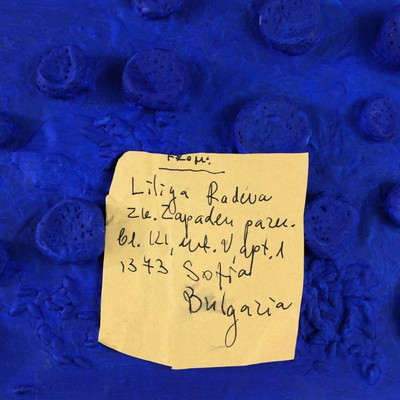 FROM:
Liliya Radeva
Zh. Zapaden park.
bl. 121, ent. V, apt. 1
1373 Sofia
Bulgaria